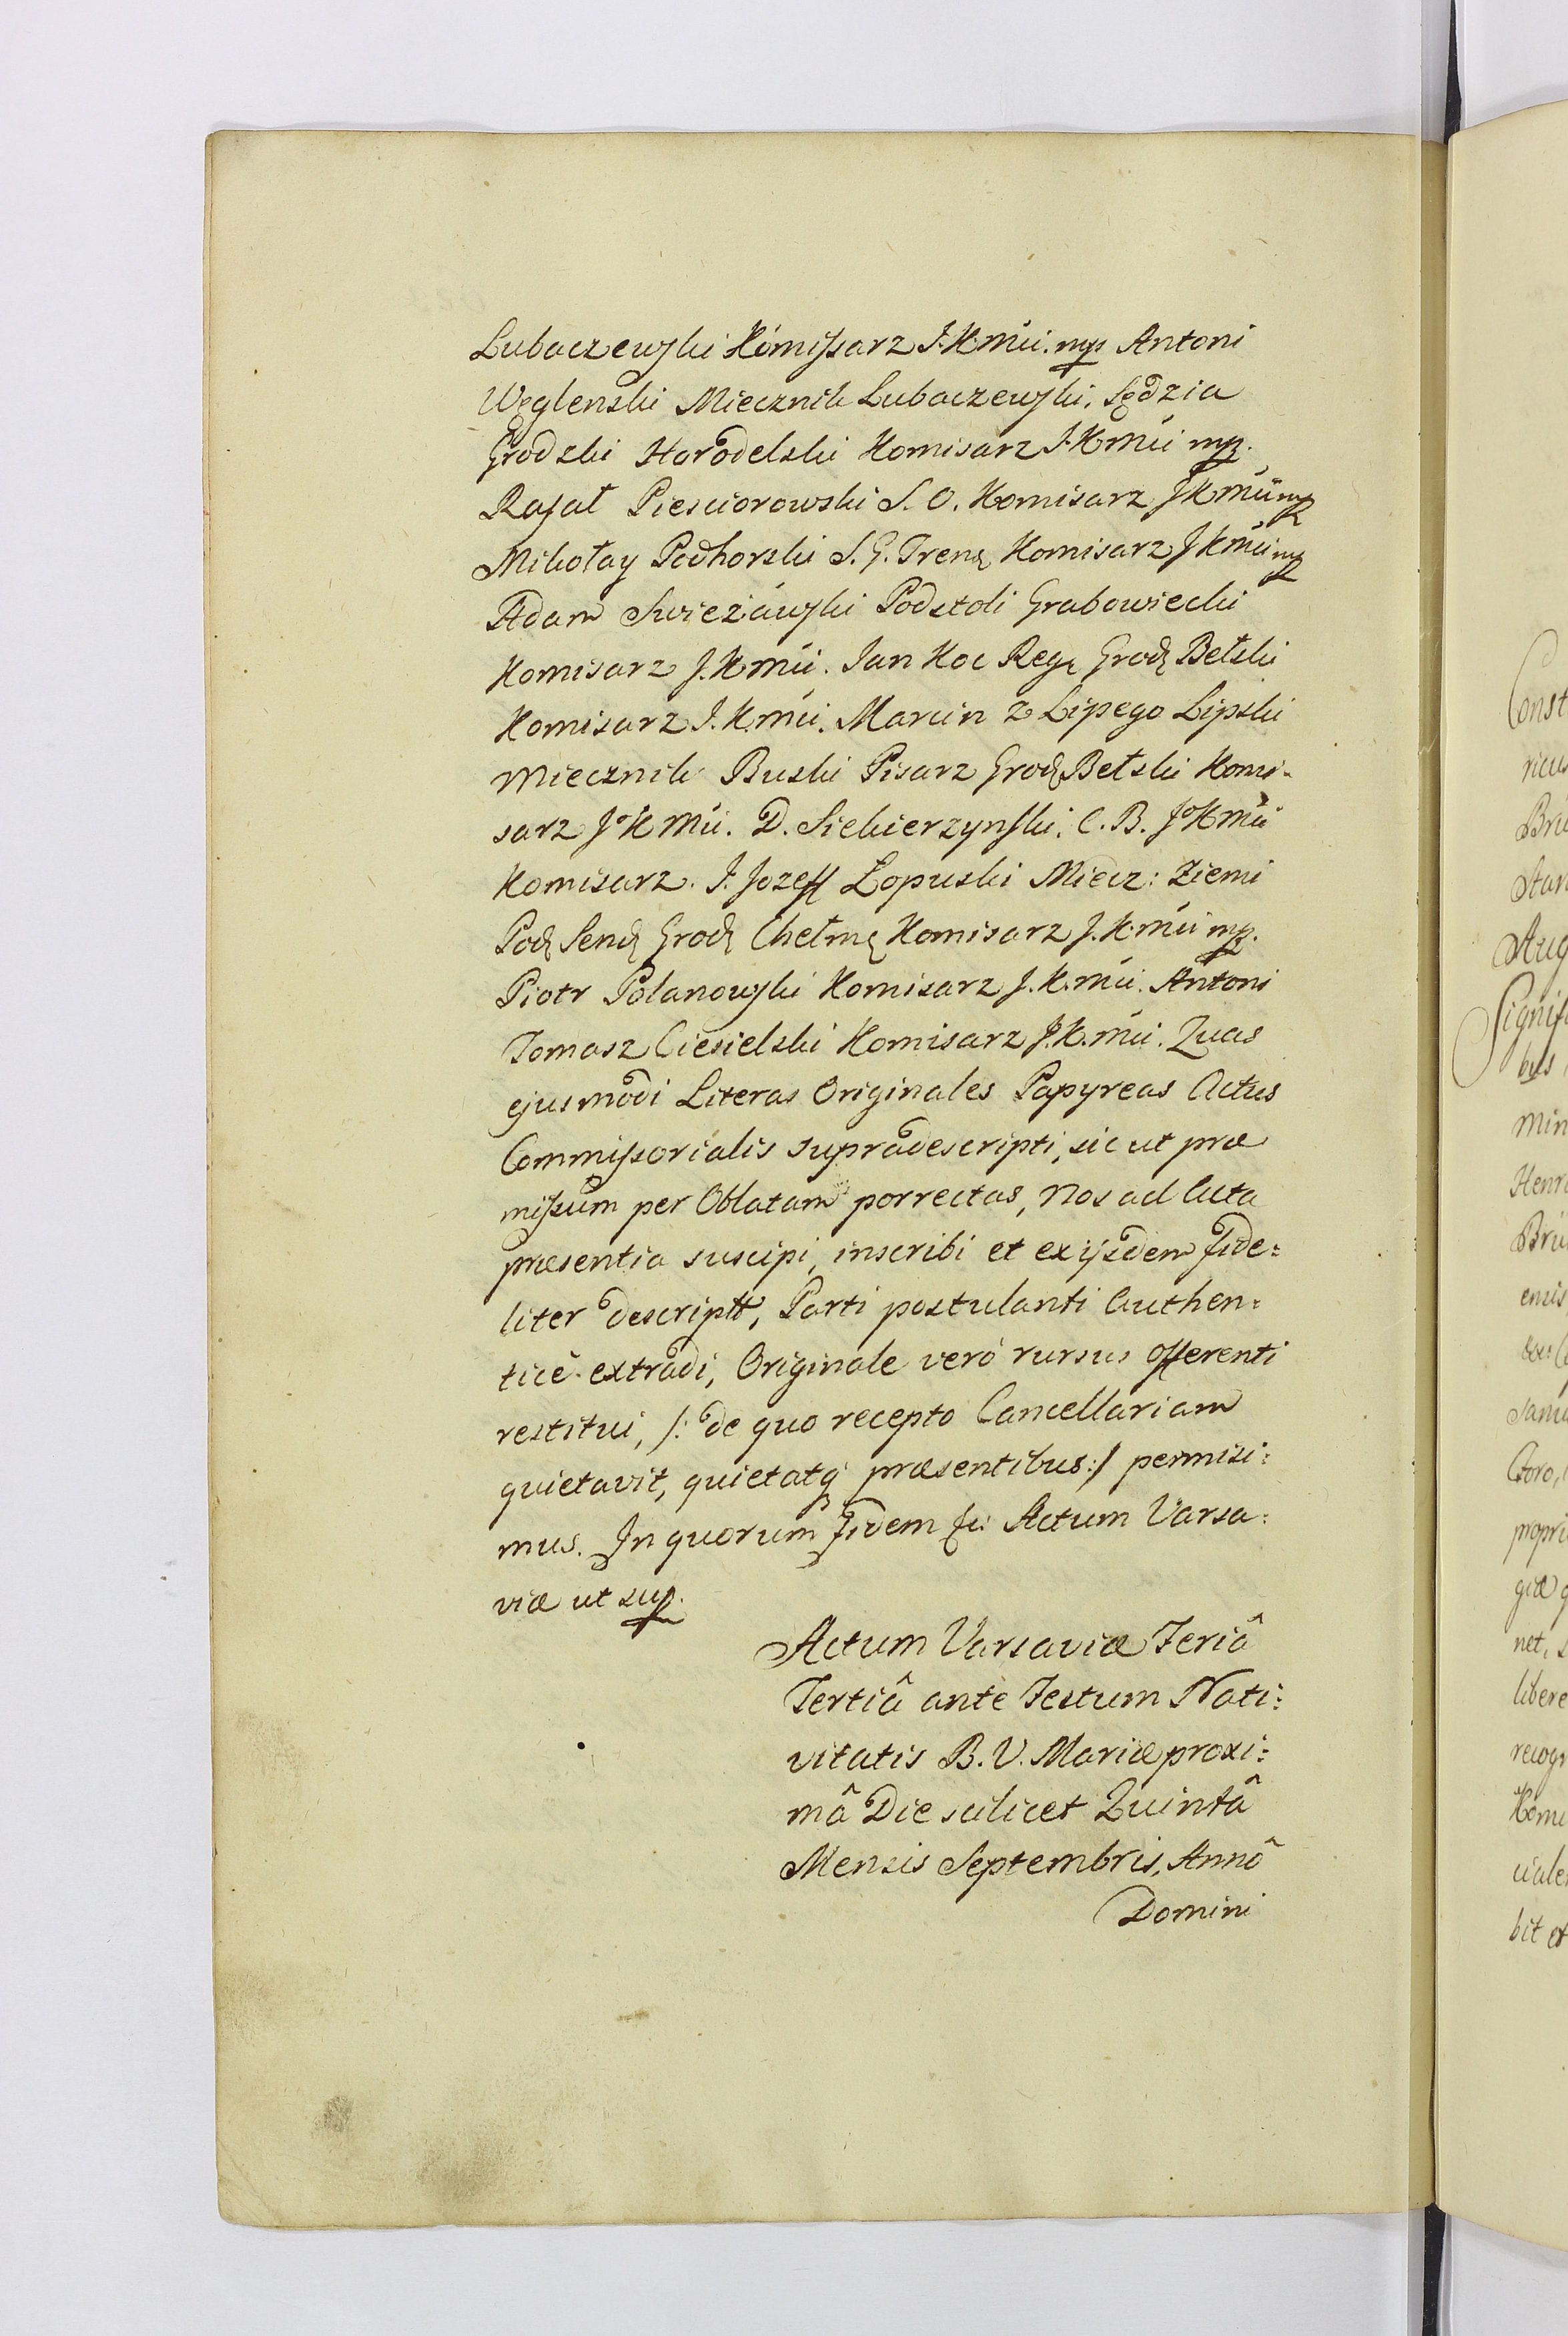 Lubaczewski Komissarz J.K.mci. mp Antoni
Węglenski Miecznik Lubaczewski, Sędzia
Grodzki Horodelski Komisarz J.K.mci mp.
Rafał Piesciorowski S. O. Komisarz J K mci mp
Mikołay Podhorski S. G. Trem. Komisarz J K mci mp
Adam Swieżáwski Podstoli Grabowiecki
Komisarz J. K mci. Jan Koc Reg. Grod. Bełski
Komisarz J. K. mci. Marcin z Lipego Lipski
Miecznik Buski Pisarz Grod. Bełski Komi-
sarz J K Mci. D. Siekierzynski. C. B. J K Mci
Komisarz. J. Jozeff Łopuski Miecz: Ziemi
Pod. Send. Grod. Chełm. Komisarz J. K. mci mp.
Piotr Polanowski Komisarz J. K. mci. Antoni
Tomasz Ciesielski Komisarz J. K. mci. Quas
ejusmodi Literas Originales Papyreas Actus
Commissorialis supradescripti, sic ut præ
missum per Oblatam porrectas, Nos ad Acta
præsentia suscipi, inscribi et ex ijsdem fide=
liter descriptt, Parti postulanti Authen=
ticè extradi, Originale verò rursus offerenti
restitui, /: de quo recepto Cancellariam
quietavit, quietatq præsentibus :/ permisi=
mus. In quorum fidem &c: Actum Varsa=
viæ ut sup.
Actum Varsaviæ Feriâ
Tertiâ ante Festum Nati=
vitatis B. V. Mariæ proxi=
mâ Die scilicet Quintâ
Mensis Septembris, Annô
Domini
Const
ricus
Stan
Aug
Signif
bus
Min
Henr
ensis
propri
giæ q
net, s
libere
recogn
Komi
ciale
bit et